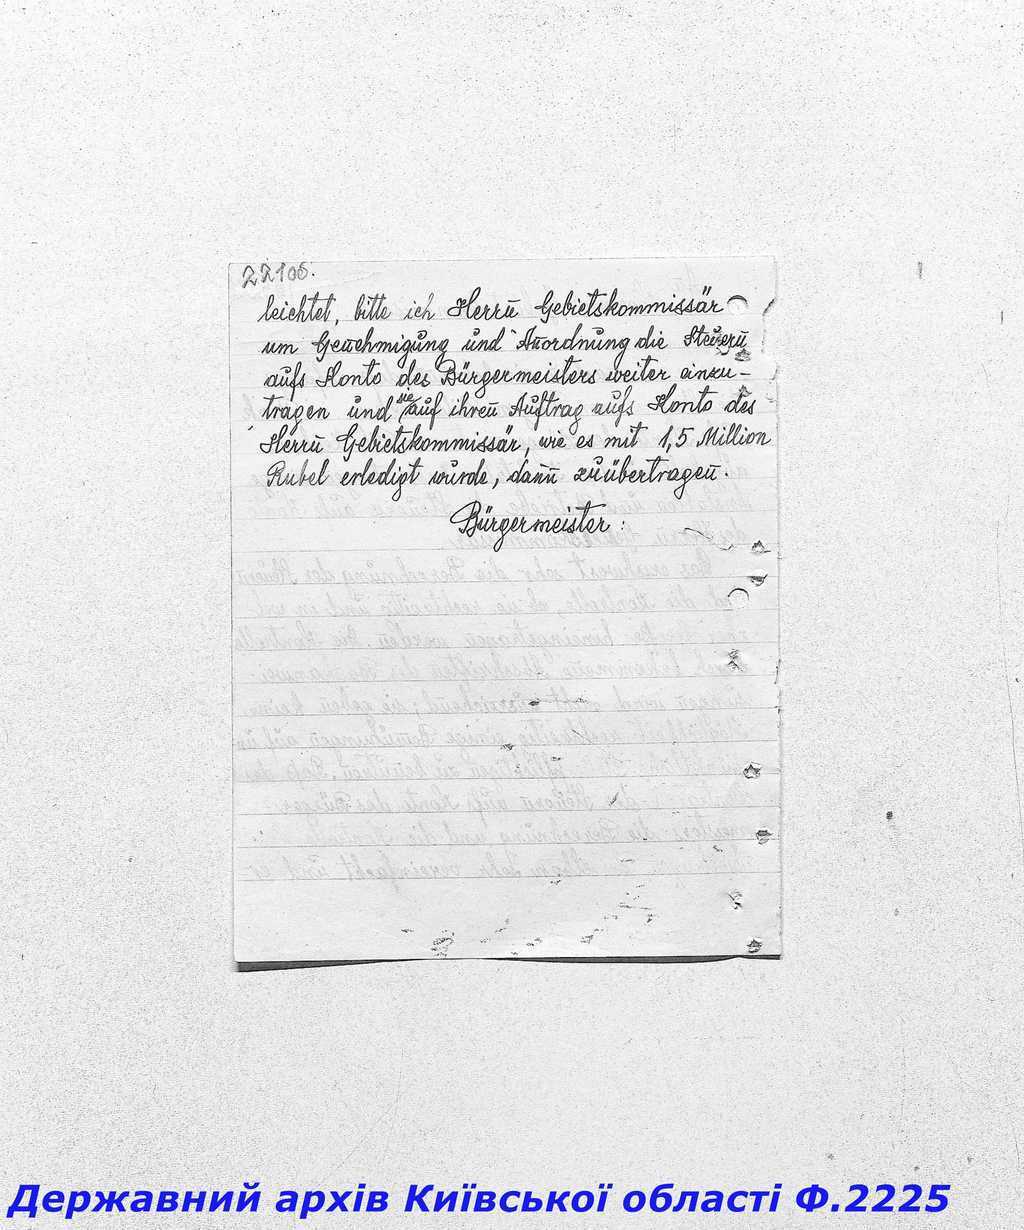 22 об.
leichtet, bitte ich Herrn Gebietskommissär
um Genehmigung und Anordnung die Steuern
aufs Konto des Bürgermeisters weiter einzu-
tragen und sie auf ihren Auftrag aufs Konto des
Herrn Gebietskommissär, wie es mit 1,5 Million
Rubel erledigt wurde, dann zuübertragen.
Bürgermeister:
Державний архів Київської області Ф.2225